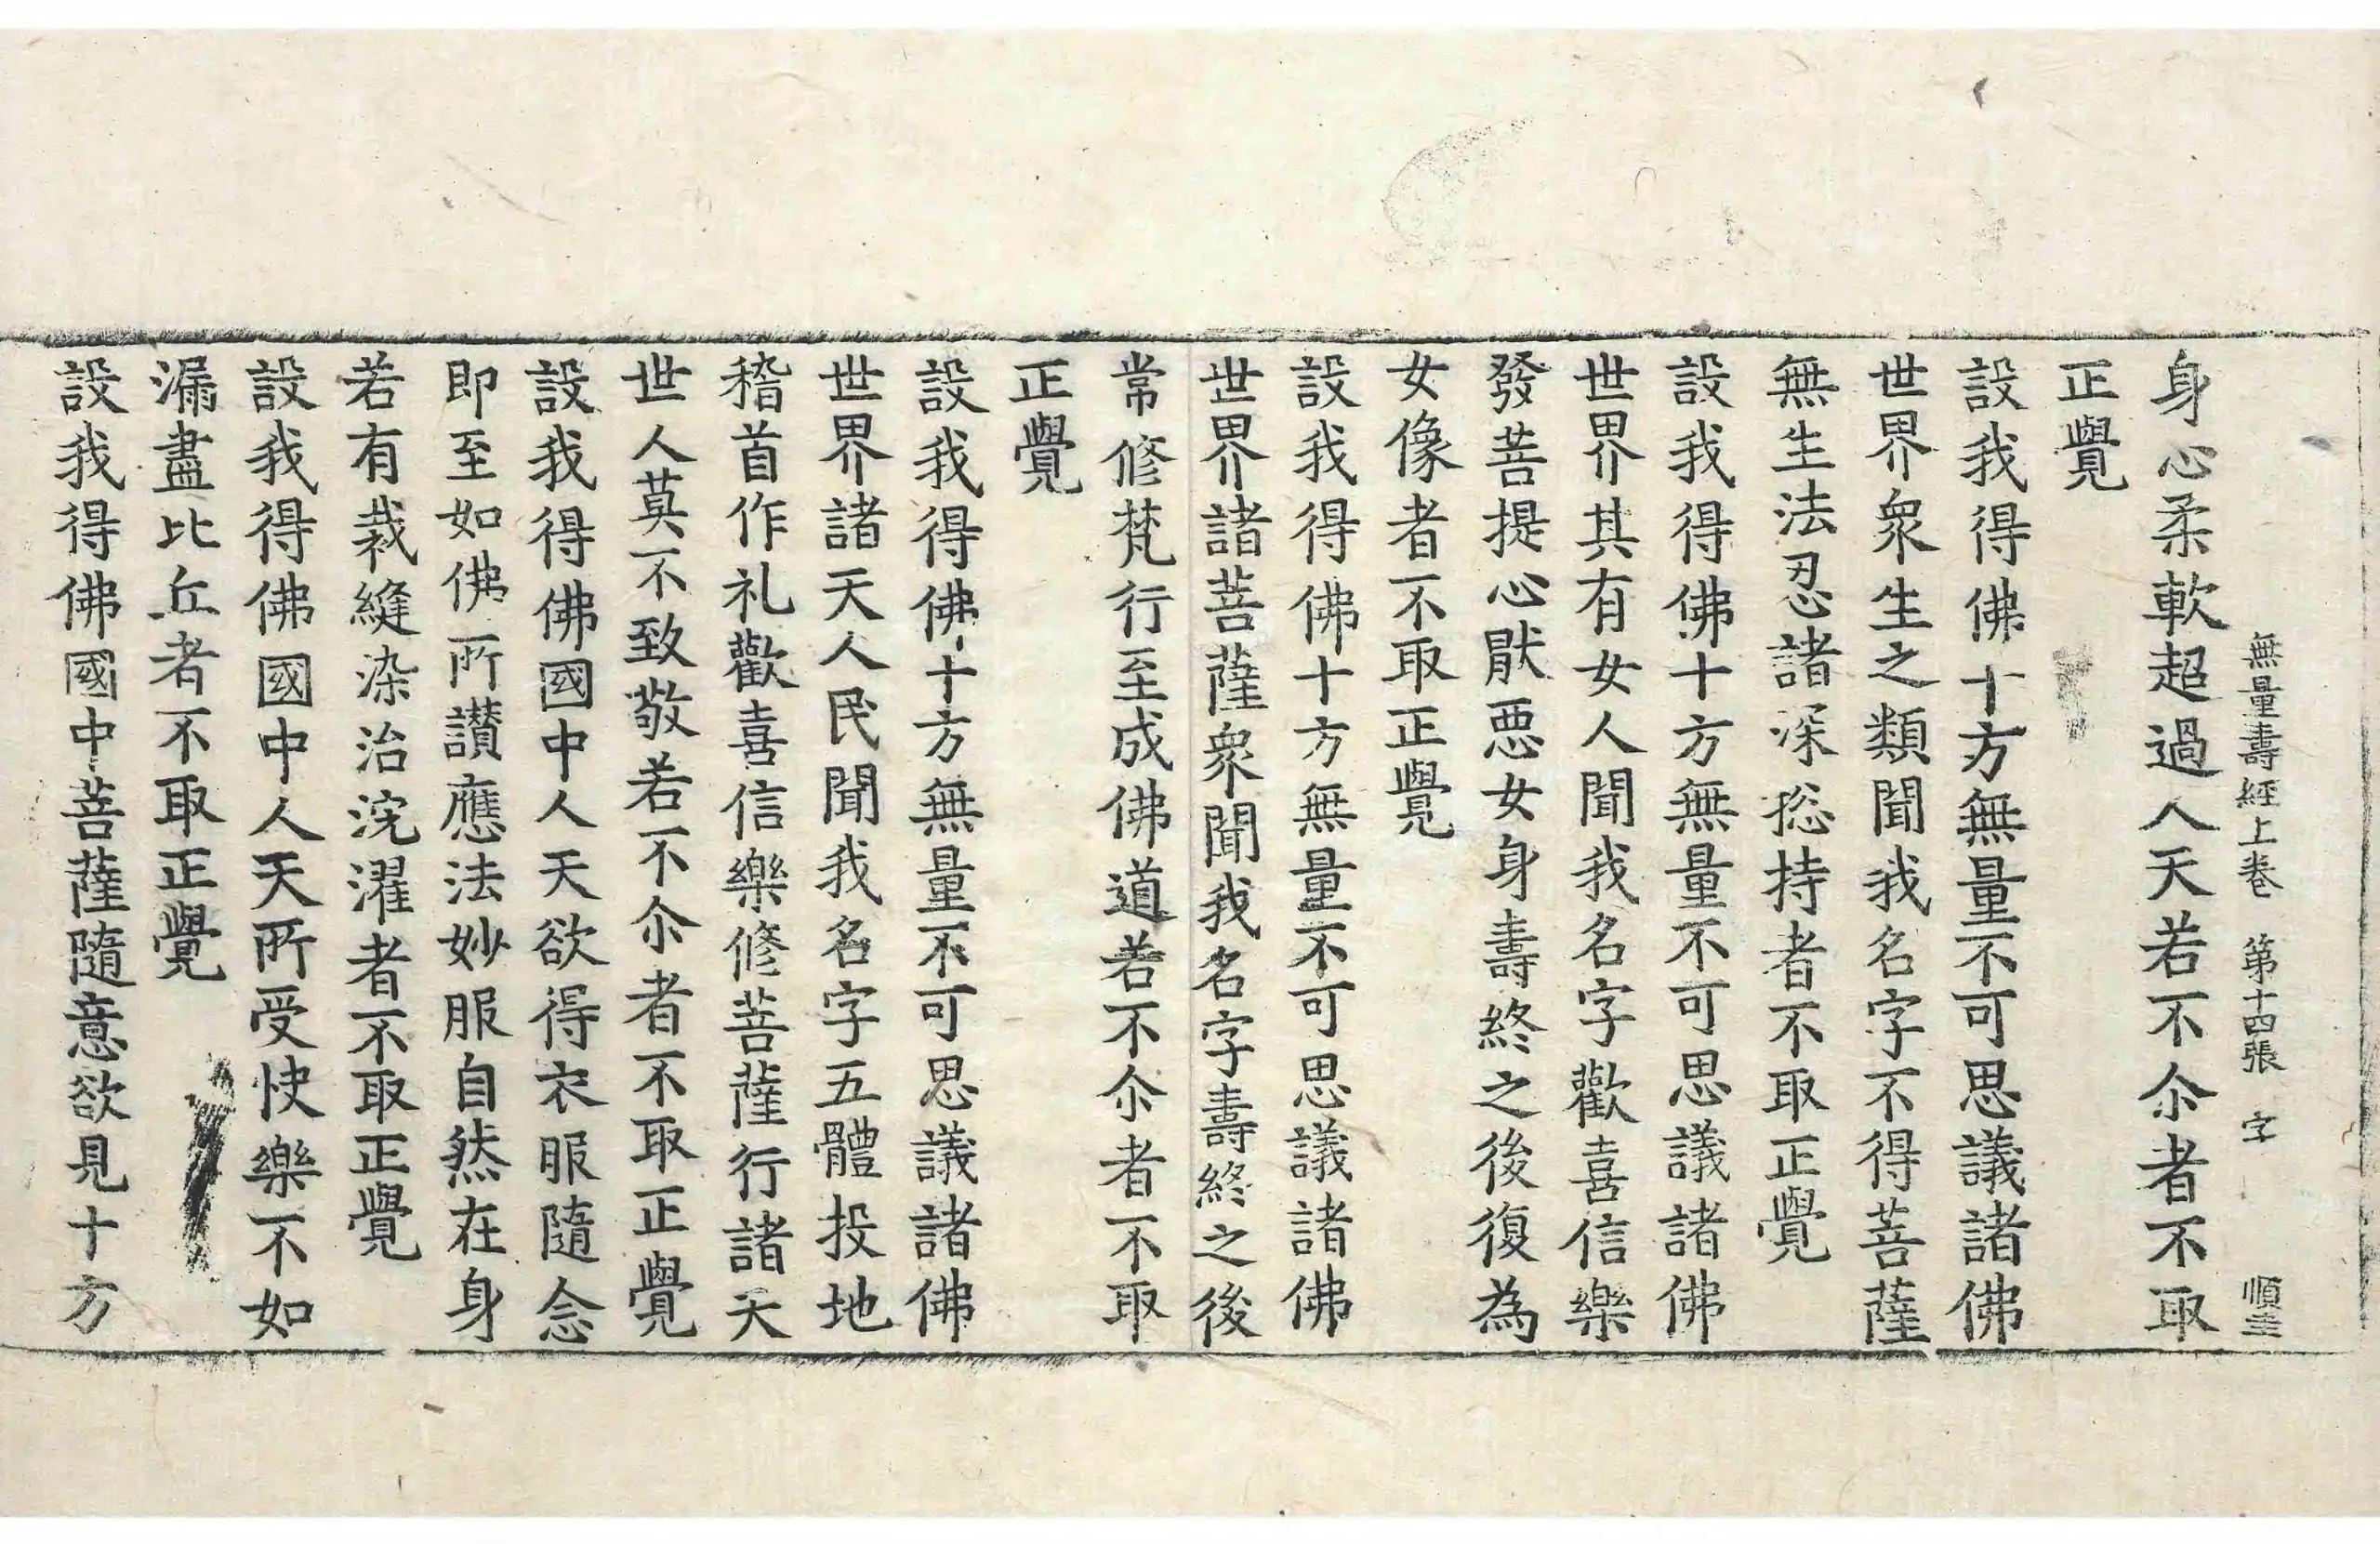 無量壽經上卷 第十四張 字 順
身心柔軟超過人天若不尒者不取
正覺
設我得佛十方無量不可思議諸佛
世界衆生之類聞我名字不得菩薩
無生法忍諸深捴持者不取正覺
設我得佛十方無量不可思議諸佛
世界其有女人聞我名字歡喜信樂
發菩提心猒惡女身壽終之後復為
女像者不取正覺
設我得佛十方無量不可思議諸佛
世界諸菩薩衆聞我名字壽終之後
常修梵行至成佛道若不尒者不取
正覺
設我得佛十方無量不可思議諸佛
世界諸天人民聞我名字五體投地
稽首作礼歡喜信樂修菩薩行諸天
世人莫不致敬若不尒者不取正覺
設我得佛國中人天欲得衣服隨念
即至如佛所讃應法妙服自然在身
若有裁縫染治浣濯者不取正覺
設我得佛國中人天所受快樂不如
漏盡比丘者不取正覺
設我得佛國中菩薩隨意欲見十方